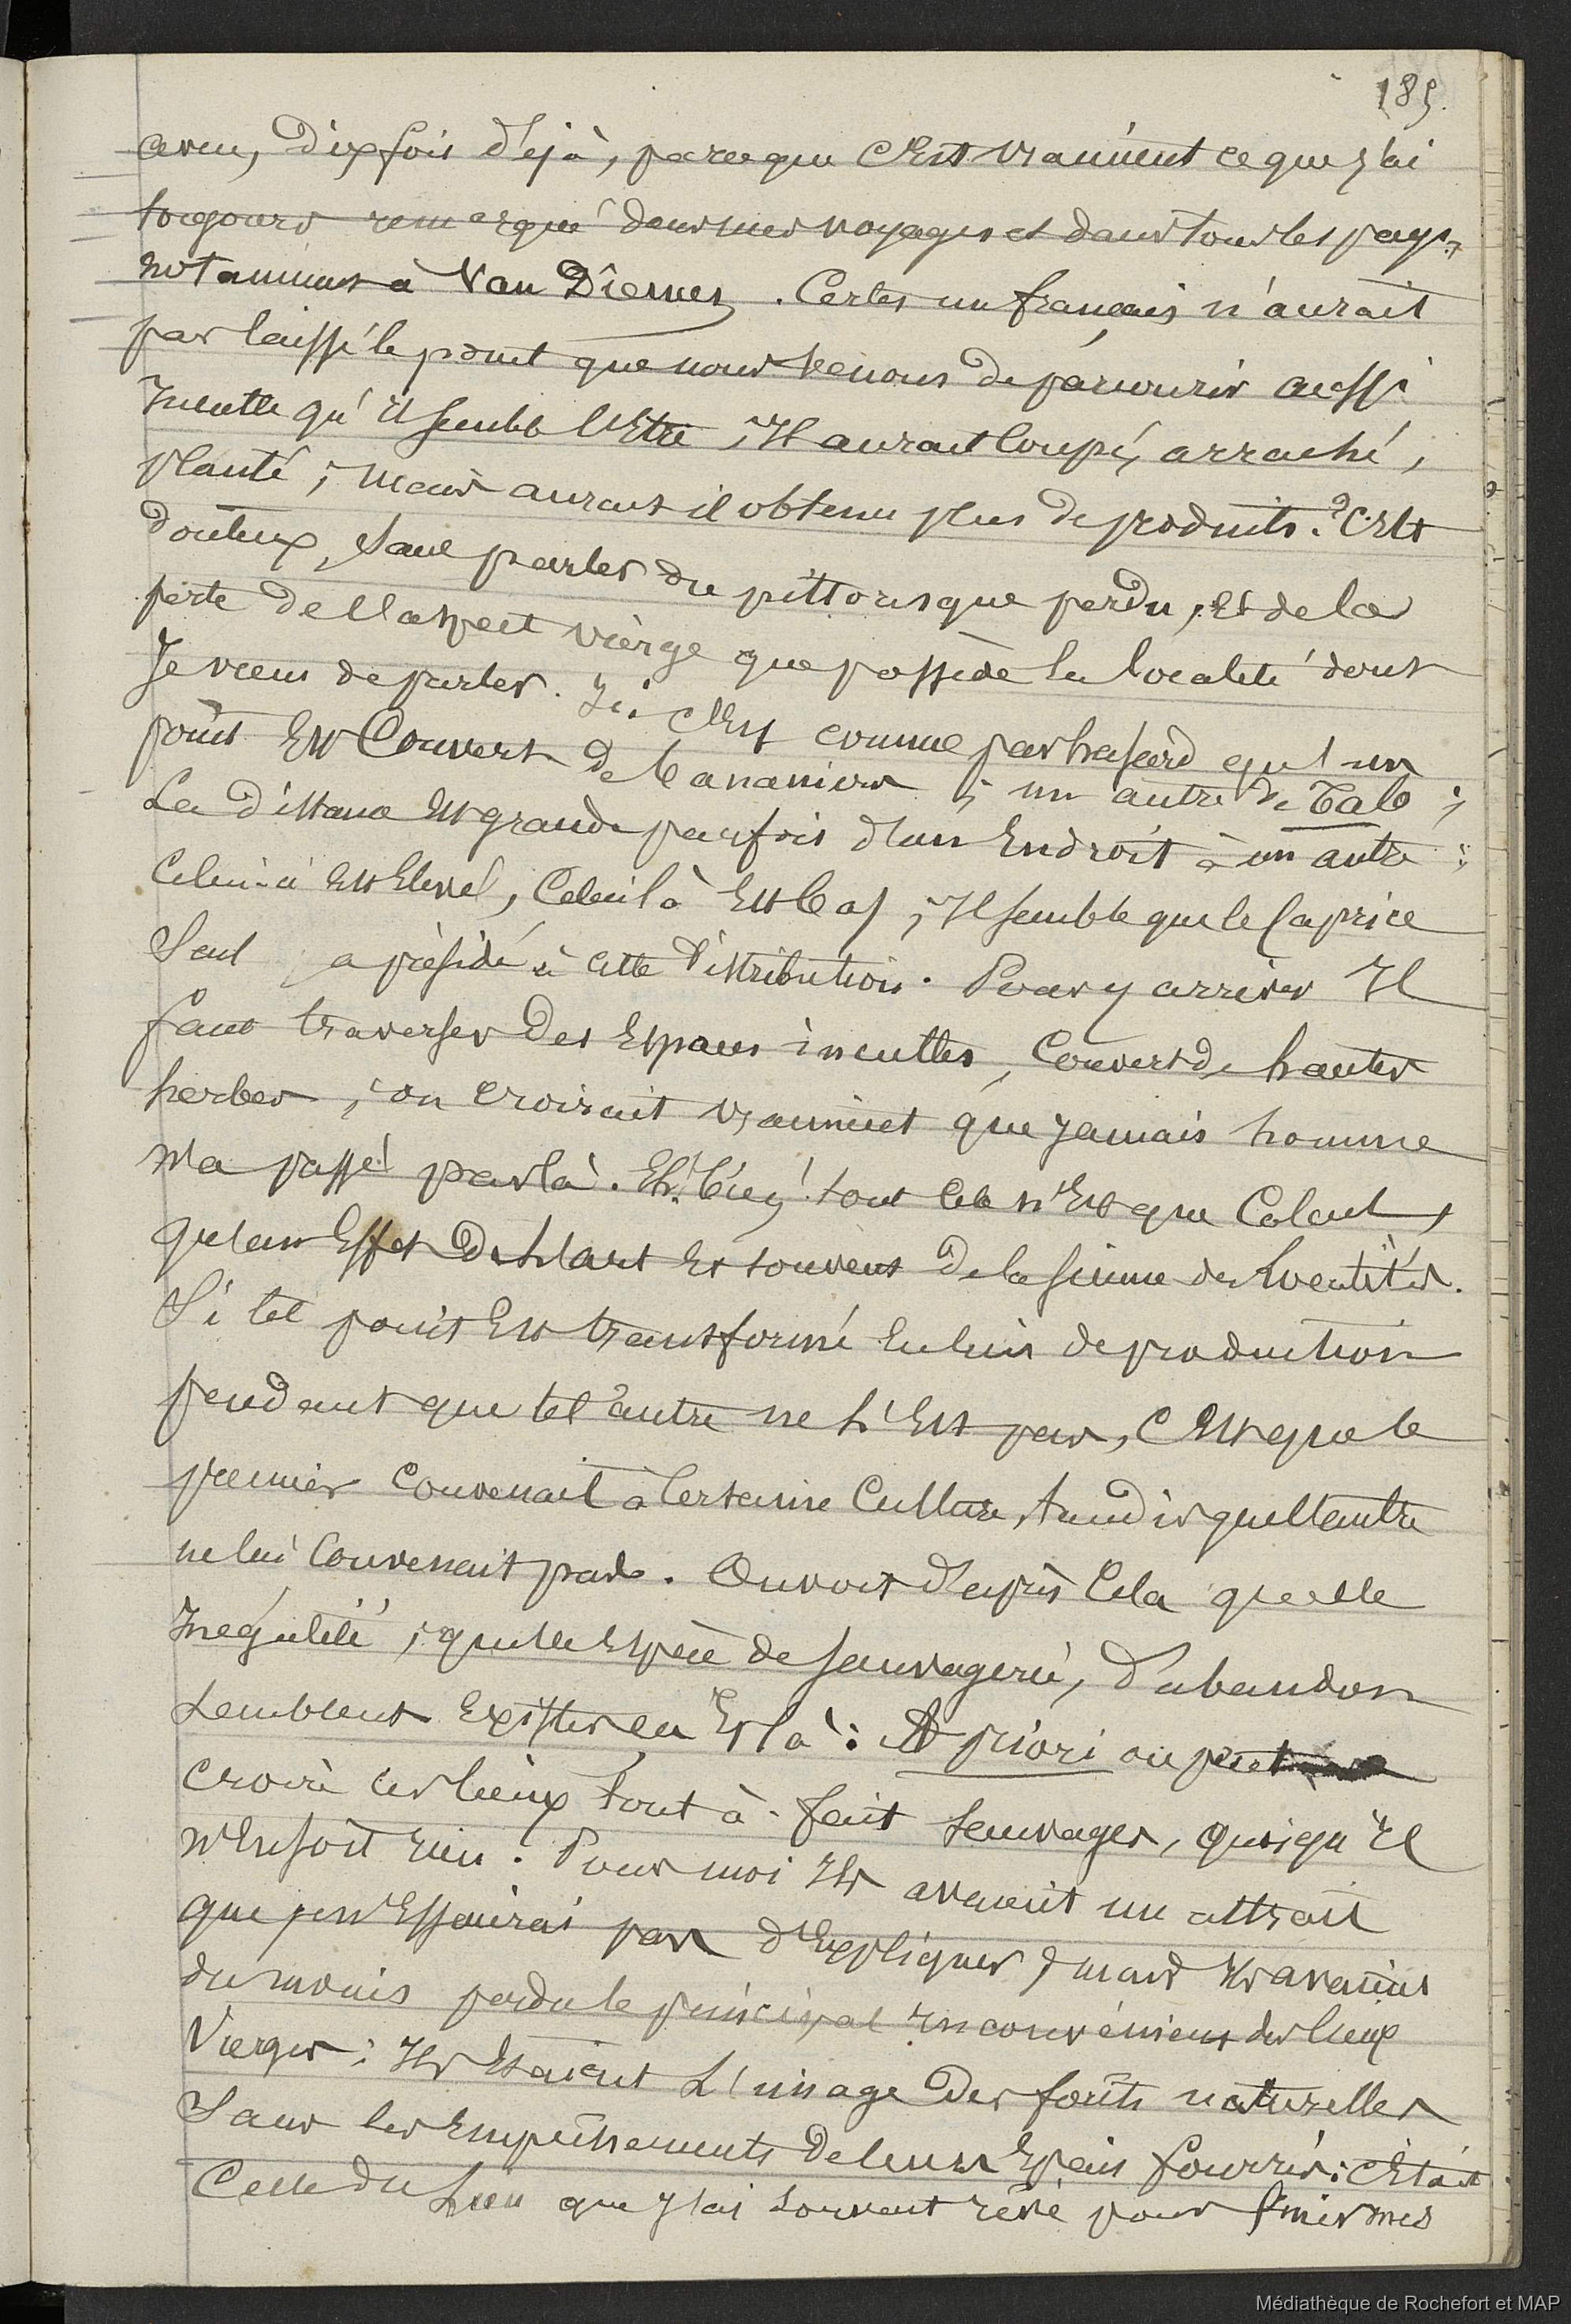 185.
aveu, dix fois déjà, parceque c'est vraiment ce que j'ai
toujours remarqué dans mes voyages et dans tous les pays,
notamment à Van Diemen. Certes un français n'aurait
pas laissé le point que nous venons de parcourir aussi
Inculte qu'il semble l'être ; Il aurait coupé, arraché,
planté ; mais aurait il obtenu plus de produits ? C'est
douteux, sans parler du pittoresque perdu, et de la
perte de l'aspect vierge que possède la localité dont
Je viens de parler. Ici c'est comme par hasard qu'un
point Est Couvert de bananiers ; un autre de Talo ;
La distance Est grande parfois d'un Endroit à un autre ;
Celui-ci est Elevé, Celui là Est bas ; Il semble que le Caprice
Seul a présidé à cette distribution. Pour y arriver Il
faut traverser des Espaces incultes, Couverts de hautes
herbes ; on croirait vraiment que jamais homme
n'a passé par là. Eh ! bien ! tout cela n'Est que Calcul,
qu'un Effet de l'art Et souvent de la science des localités.
Si tel point Est transformé en lieu de production
pendant que tel autre ne l'Est pas, c'Est que le
premier Convenait à Certaine Culture, tandis que l'autre
ne lui Convenait pas. On voit d'après Cela quelle
Inégalité ; quelle Espèce de sauvagerie, d'abandon
semblent Exister ça Et là : A priori on peut
croire ces lieux tout à-fait sauvages, quoiqu'Il
n'En soit rien. Pour moi Ils avaient un attrait
que je n'Essairai pas d'Expliquer ; mais Ils avaient
du moins perdu le principal Inconvénient des lieux
Vierges ; Ils Etaient L'image des forêts naturelles
Sans les Empêchements de leurs Epais fourrés : c'Etait
Celle du Lieu que j'ai souvent rêvé pour finir mes
Médiathèque de Rochefort et MAP